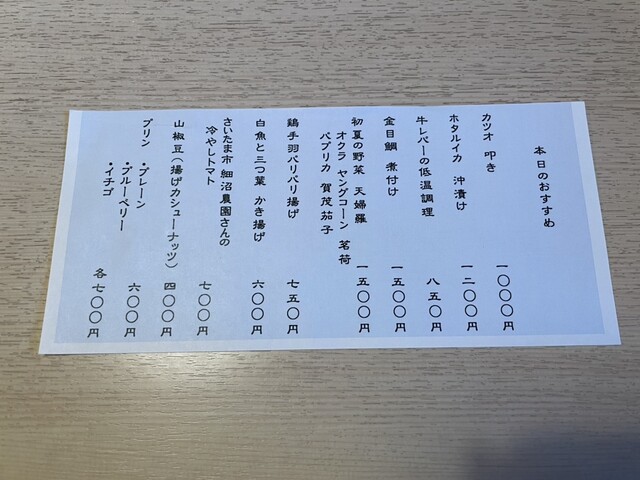 本日のおすすめ
カツオ 叩き 一〇〇〇円
ホタルイカ 沖漬け 一二〇〇円
牛レバーの低温調理 八五〇円
金目鯛 煮付け 一五〇〇円
初夏の野菜 天婦羅 一五〇〇円
オクラ ヤングコーン 茗荷
パプリカ 賀茂茄子
鶏手羽パリパリ揚げ 七五〇円
白魚と三つ葉 かき揚げ 六〇〇円
さいたま市 細沼農園さんの
冷やしトマト 七〇〇円
山椒豆(揚げカシューナッツ) 四〇〇円
プリン ・プレーン 六〇〇円
・ブルーベリー
・イチゴ 各七〇〇円